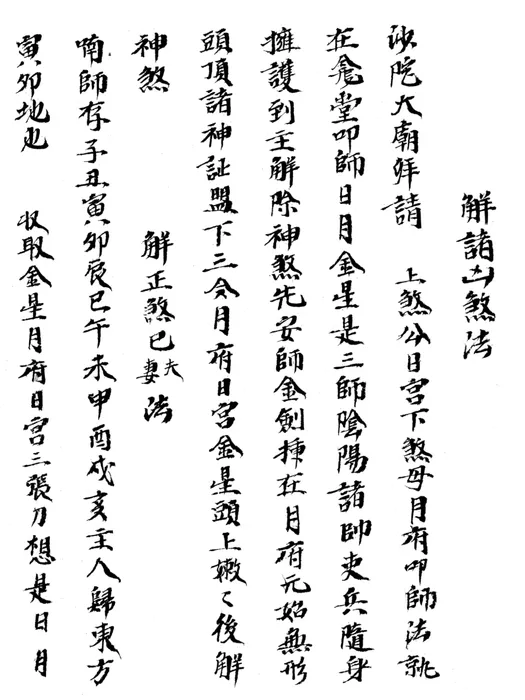 解諸凶煞法
沙陀大廟拜請 上煞公日宮下煞母月府叩師法就
在龛堂叩師日月金星是三師陰陽諸帥吏兵隨身
擁護到主解除神煞先安師金劍揷在月府元始無形
頭頂諸神証盟下三令月府日宮金星頭上撒〻後解
神煞 解正煞巳夫妻法
喃師存子丑寅卯辰巳午未申酉戍亥主人歸東方
寅卯地也 收取金星月府日宮三張刀想是日月